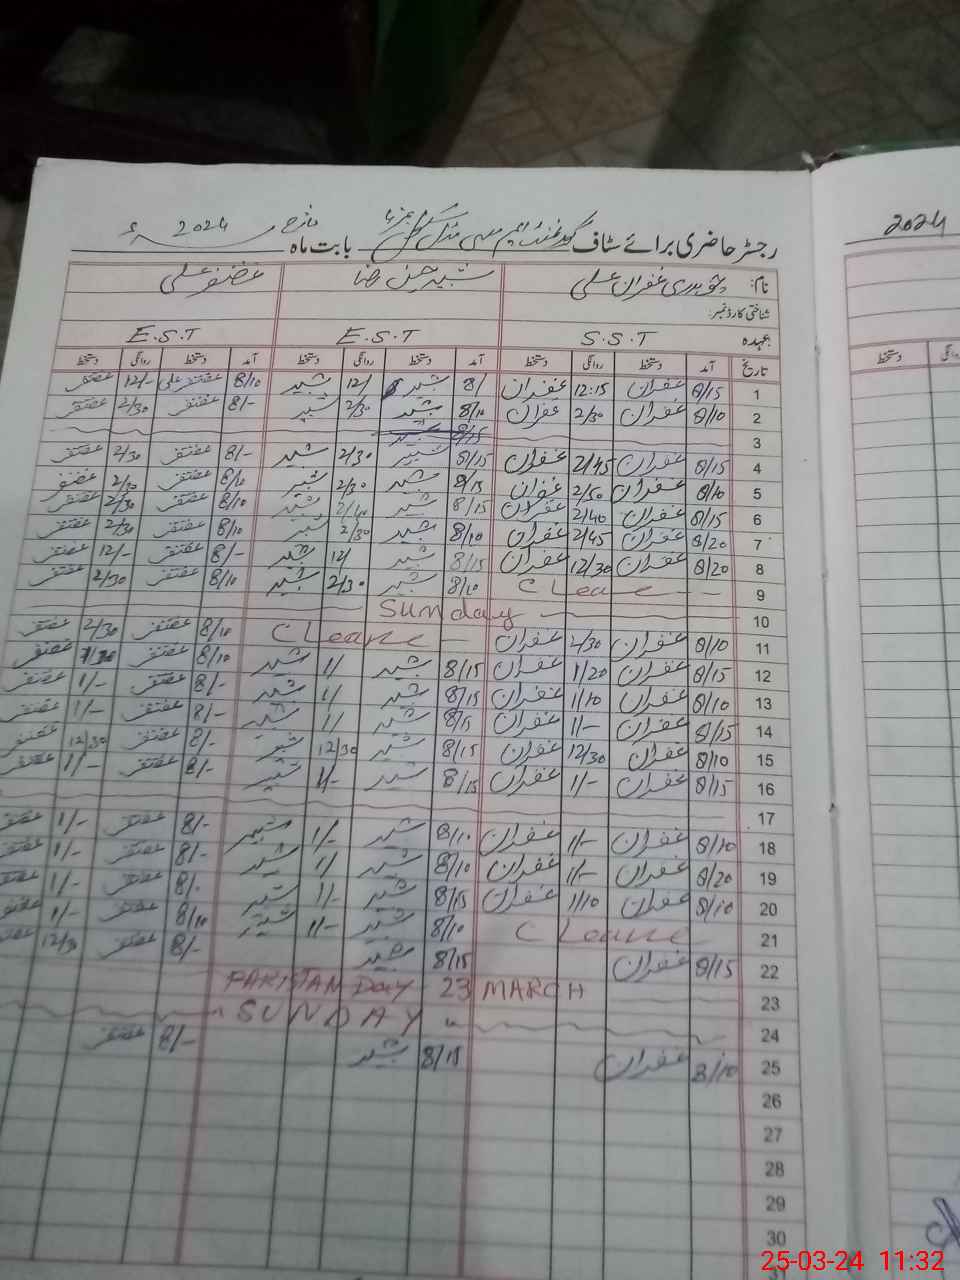 2024
رجسٹر حاضری برائے سٹاف گورنمنٹ ایم سی مڈل سکول نمبر بابت ماہ مارچ 2024ء
نام: چوہدری غفران علی شبیر حسن رضا غضنفر علی
شناختی کارڈ نمبر:
عہدہ: S.S.T E.S.T E.S.T
تاریخ آمد دستخط روانگی دستخط آمد دستخط روانگی دستخط آمد دستخط روانگی دستخط
دستخط
1 8/15 غفران 12:15 غفران 8/ شبیر 12/ شبیر 8/10 غضنفر علی 12/- غضنفر
2 8/10 غفران 2/30 غفران 8/10 شبیر 2/30 شبیر 8/- غضنفر 2/30 غضنفر
3 8/15 شبیر
4 8/15 غفران 2/45 غفران 8/15 شبیر 2/30 شبیر 8/- غضنفر 2/30 غضنفر
5 8/10 غفران 2/50 غفران 8/15 شبیر 2/30 شبیر 8/10 غضنفر 2/30 غضنفر
6 8/15 غفران 2/40 غفران 8/15 شبیر 2/40 شبیر 8/10 غضنفر 2/30 غضنفر
7 8/20 غفران 2/45 غفران 8/10 شبیر 2/30 شبیر 8/10 غضنفر 2/30 غضنفر
8 8/20 غفران 12/30 غفران 8/15 شبیر 12/ شبیر 8/- غضنفر 12/- غضنفر
9 C Leave 8/10 شبیر 2/30 شبیر 8/10 غضنفر 2/30 غضنفر
10 Sunday
11 8/10 غفران 2/30 غفران C Leave 8/10 غضنفر 2/30 غضنفر
12 8/15 غفران 1/20 غفران 8/15 شبیر 1/ شبیر 8/10 غضنفر غضنفر
13 8/10 غفران 1/10 غفران 8/15 شبیر 1/ شبیر 8/- غضنفر 1/- غضنفر
14 8/15 غفران 1/- غفران 8/15 شبیر 1/ شبیر 8/- غضنفر 1/- غضنفر
15 8/10 غفران 12/30 غفران 8/15 شبیر 12/30 شبیر 8/- غضنفر 12/30 غضنفر
16 8/15 غفران 1/- غفران 8/15 شبیر 1/- شبیر 8/- غضنفر 1/- غضنفر
17
18 8/10 غفران 1/- غفران 8/10 شبیر 1/- شبیر 8/- غضنفر 1/- غضنفر
19 8/20 غفران 1/- غفران 8/10 شبیر 1/ شبیر 8/- غضنفر 1/- غضنفر
20 8/10 غفران 1/10 غفران 8/15 شبیر 1/- شبیر 8/- غضنفر 1/- غضنفر
21 C Leave 8/10 شبیر 1/- شبیر 8/10 غضنفر 1/- غضنفر
22 8/15 غفران 8/15 شبیر 8/- غضنفر 12/30 غضنفر
23 PAKISTAN Day 23 MARCH
24 SUNDAY
25 8/10 غفران 8/15 شبیر 8/- غضنفر
26
27
28
29
30
25-03-24 11:32